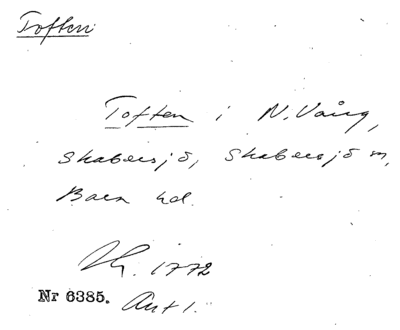 Toften
Toften i N. Vång,
Skabersjö, Skabersjö sn,
Bara hd.
1772
Nr 6385. Akt 1.